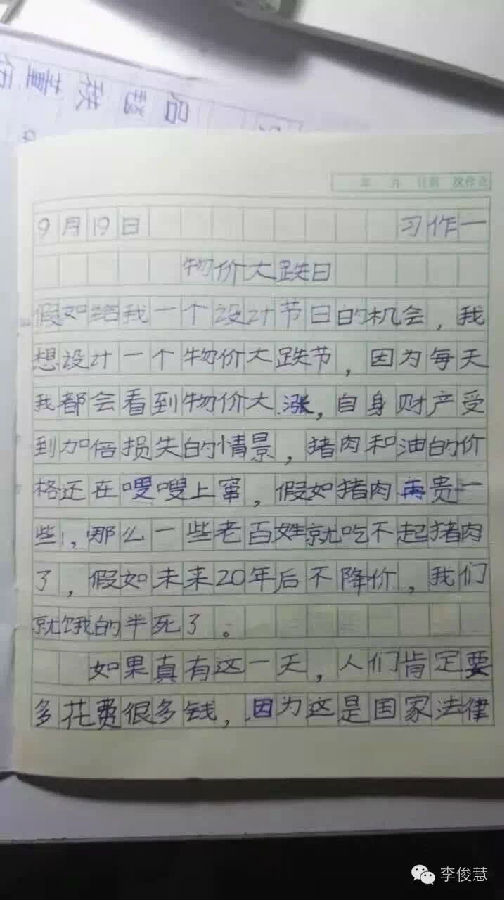 年 月 日
9月19日 习作一
物价大跌日
假如给我一个设计节日的机会，我
想设计一个物价大跌节，因为每天
我都会看到物价大涨，自身财产受
到加倍损失的情景，猪肉和油的价
格还在嗖嗖上窜，假如猪肉再贵一
些，那么一些老百姓就吃不起猪肉
了，假如未来20年后不降价，我们
就饿的半死了。
如果真有这一天，人们肯定要
多花费很多钱，因为这是国家法律
李俊慧